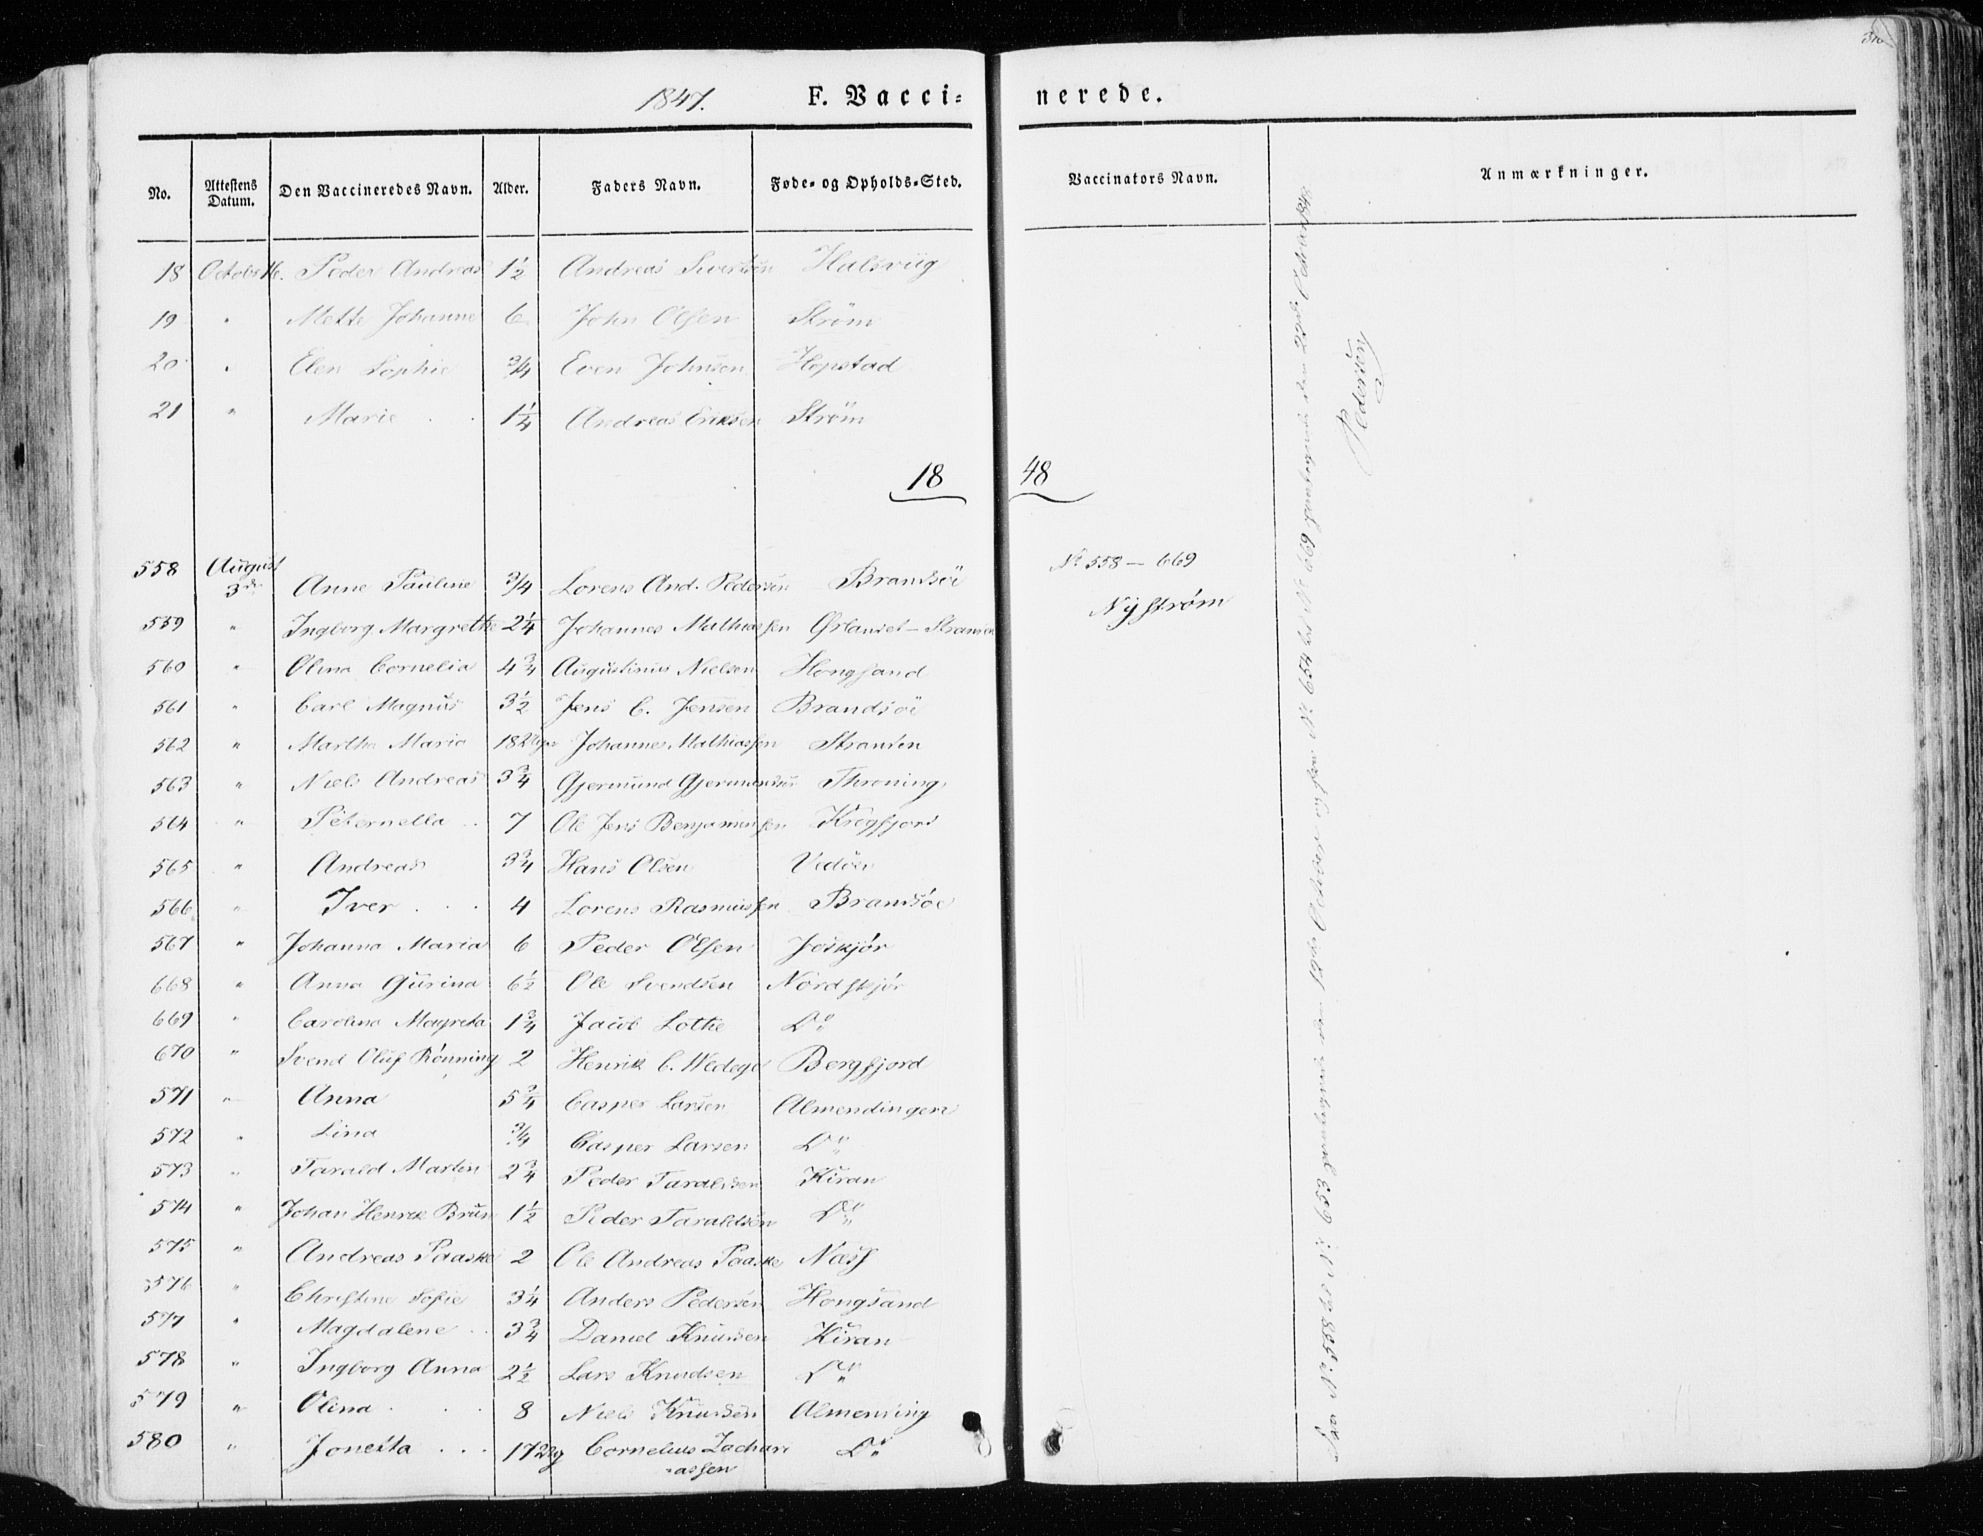 1847. F. Vacci= nerede.
No. Attestens Datum. Den Vaccineredes Navn. Alder. Faders Navn. Føde- og Opholds-Sted. Vaccinators Navn. Anmærkninger.
18 Octobr 16. Peder Andreas 1½ Andreas Sivertsen Halsviig
19 " Mette Johanne 6 John Olsen Strøm
20 " Elen Sophie ¾ Even Johnsen Hopstad
21 " Marie 1¼ Andreas Eriksen Strøm
18 48
558 August 3die Anne Pauline ¾ Lorens And. Pedersen Brandsöe No 558 – 669
559 " Ingborg Margrethe 2¼ Johannes Mathiassen Ørlandet – Stranden Nyström
560 " Olina Cornelia 4¾ Augustinus Nielsen Hongsand
561 " Carl Magnus 3½ Jens C. Jensen Brandsöe
562 " Martha Maria 18 Johannes Mathiassen Stranden
563 " Niels Andreas 3¾ Gjermund Gjermundsen Throning
564 " Peternella 7 Ole Jens Benjaminsen Krogfjord
565 " Andreas 3¾ Hans Olsen
566 " Iver 4 Lorens Rasmussen Brandsöe
567 " Johanna Maria 6 Peder Olsen Joskjør
668 " Anna Gurina 6½ Ole Svendsen Nordskjør
669 " Carolina Magreta 1¾ Jacob Lothe Do
670 " Svend Oluf Rönning 2 Henrik C. Wedege Bergfjord
571 " Anna 5¾ Casper Larsen Almendingen
572 " Lina ¾ Casper Larsen Do
573 " Tarald Martin 2¾ Peder Taraldsen Kiran
574 " Johan Henrik Brun 1½ Peder Taraldsen Do
575 " Andreas Paaske 2 Ole Andreas Paaske Næss
576 " Christine Sofie 3¼ Anders Pedersen Hongsand
577 " Magdalene 3¾ Daniel Knudsen Kiran
578 " Ingborg Anna 2½ Lars Knudsen Do
579 " Olina 8 Niels Knudsen Almenning
580 " Jonetta 17 Cornelius Zachari
assen Do
No 558 til No 653 den 12te October og fra No 654 til No 669 den 22de
Pedersen